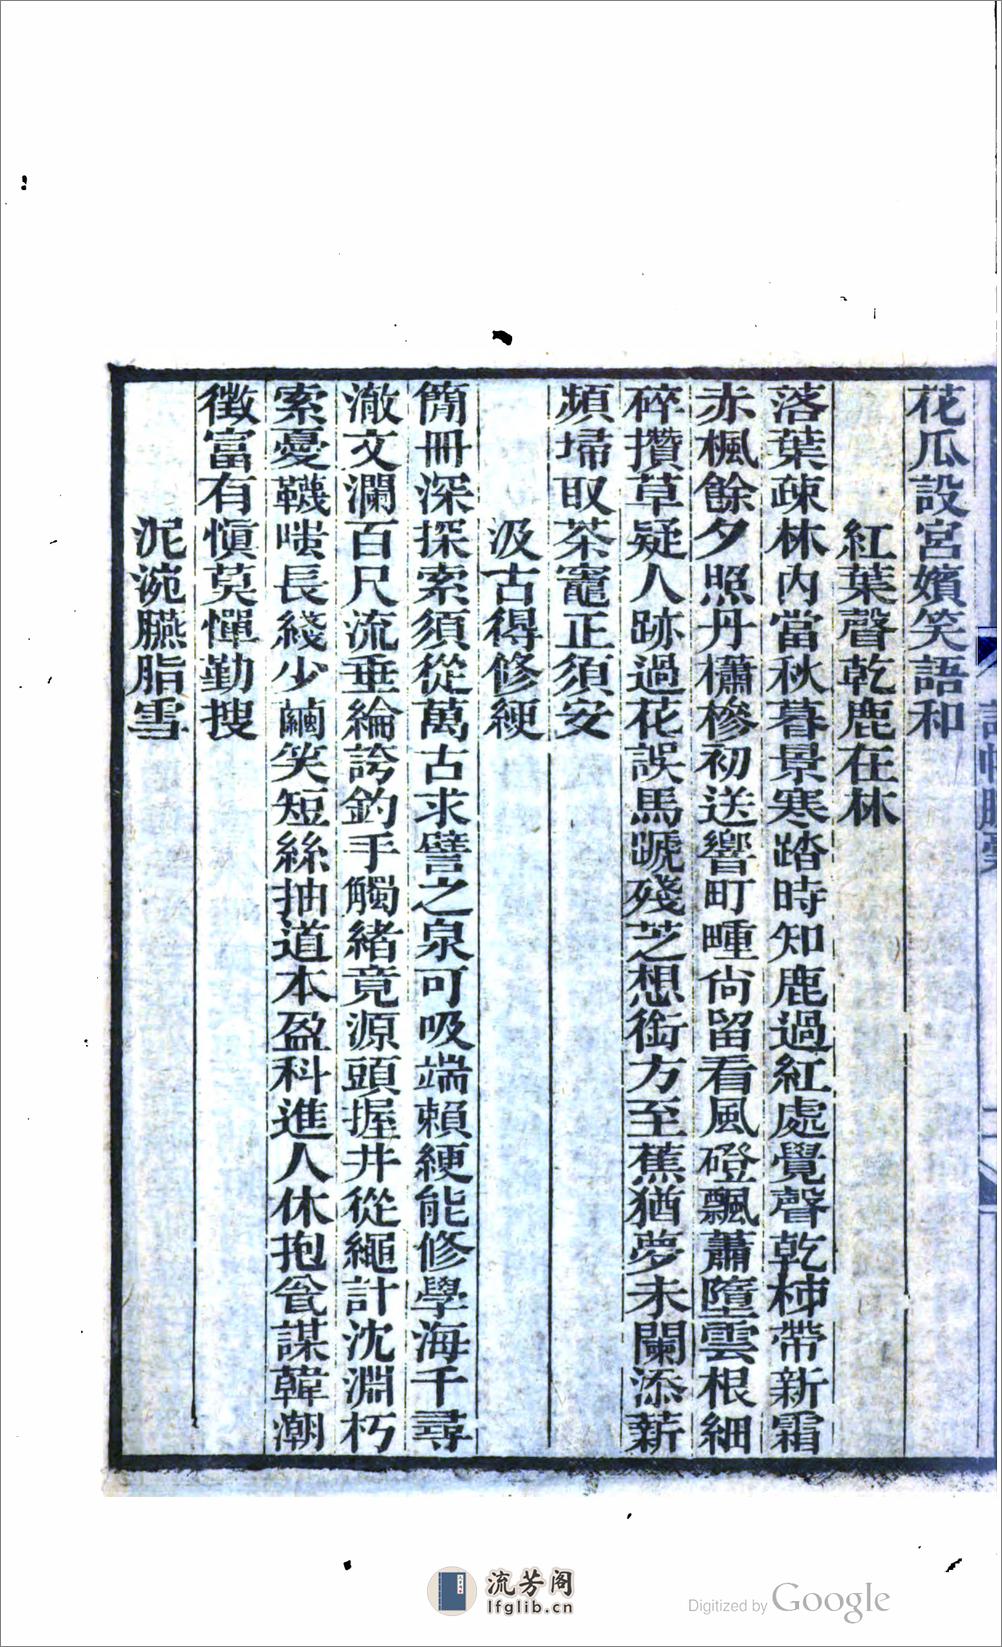 花瓜設宮嬪笑語和
紅葉聲乾鹿在林
落葉疎林內當秋暮景寒踏時知鹿過紅處覺聲乾柿帶新霜
赤楓餘夕照丹櫹槮初送響町畽尙留看風磴飄蕭墮雲根細
碎攢草疑人跡過花誤馬蹏殘芝想銜方至蕉猶夢未闌添薪
頻埽取茶竈正須安
汲古得修綆
簡冊深探索須從萬古求譬之泉可吸端賴綆能修學海千尋
澈文瀾百尺流垂綸誇釣手觸緒竟源頭握井從繩計沈淵朽
索憂韈嗤長綫少繭笑短絲抽道本盈科進人休抱瓮謀韓潮
徵富有愼莫憚勤搜
泥涴臙脂雪
流芳阁
lfglib.cn
Digitized by Google